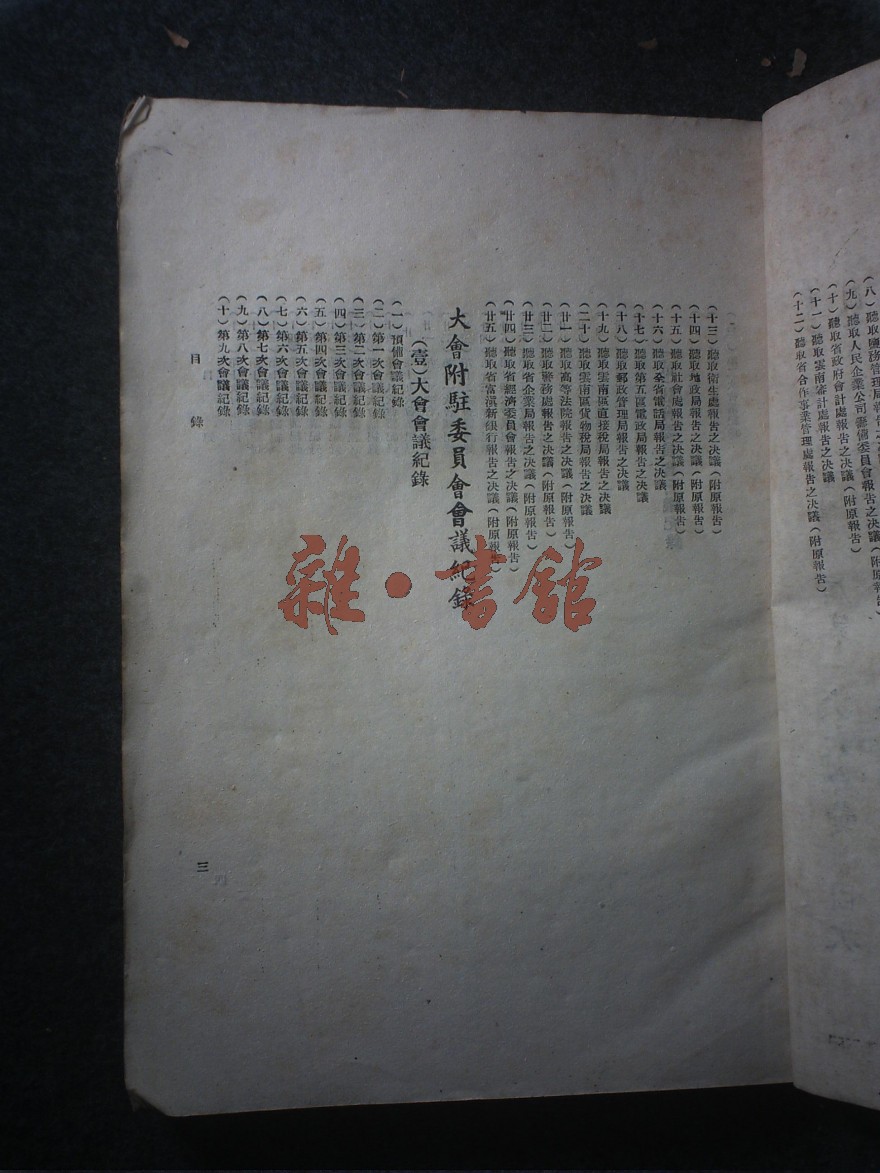 (八)聽取鹽務管理局報告之決議(附原報告)
(九)聽取人民企業公司籌備委員會報告之決議(附原報告)
(十)聽取省政府會計處報告之決議(附原報告)
(十一)聽取雲南審計處報告之決議
(十二)聽取省合作事業管理處報告之決議(附原報告)
(十三)聽取衛生處報告之決議(附原報告)
(十四)聽取地政局報告之決議(附原報告)
(十五)聽取社會處報告之決議(附原報告)
(十六)聽取全省電話局報告之決議
(十七)聽取第五區電政局報告之決議
(十八)聽取郵政管理局報告之決議
(十九)聽取雲南區直接稅局報告之決議
(二十)聽取雲南區貨物稅局報告之決議
(廿一)聽取高等法院報告之決議(附原報告)
(廿二)聽取警務處報告之決議(附原報告)
(廿三)聽取省企業局報告之決議(附原報告)
(廿四)聽取省經濟委員會報告之決議(附原報告)
(廿五)聽取省富滇新銀行報告之決議(附原報告)
大會附駐委員會會議紀錄
(壹)大會會議紀錄
(一)預備會議紀錄
(二)第一次會議紀錄
(三)第二次會議紀錄
(四)第三次會議紀錄
(五)第四次會議紀錄
(六)第五次會議紀錄
(七)第六次會議紀錄
(八)第七次會議紀錄
(九)第八次會議紀錄
(十)第九次會議紀錄
目錄
三
雜·書館